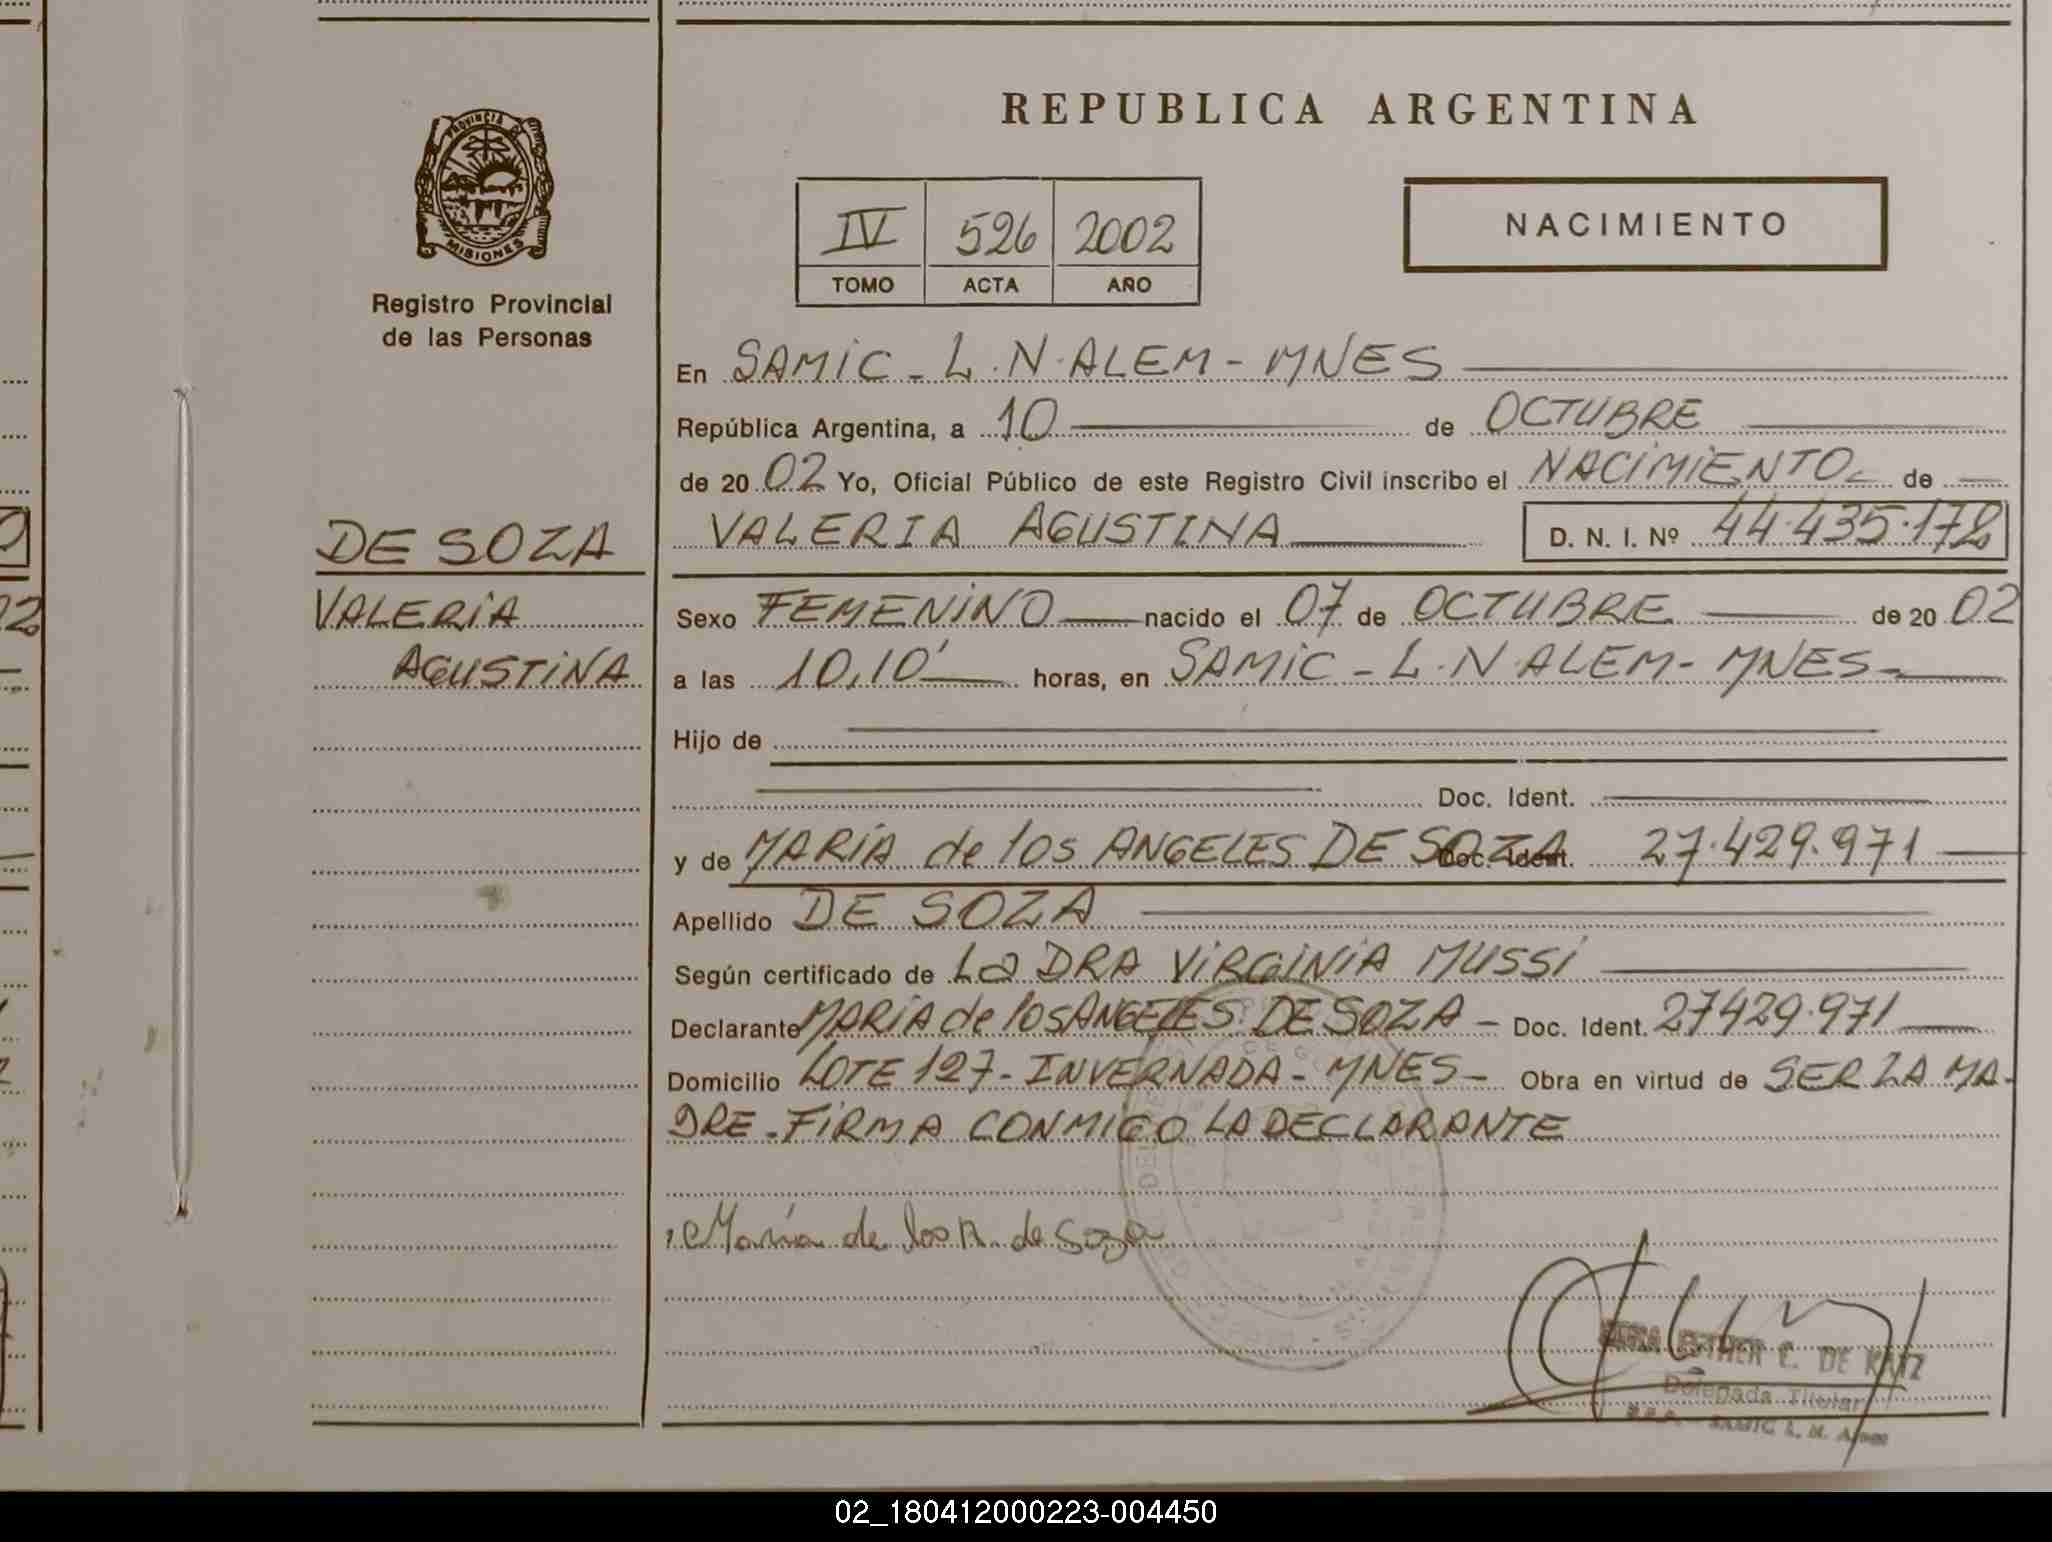 REPUBLICA ARGENTINA
PROVINCIA DE
MISIONES
Registro Provincial
de las Personas
IV 526 2002
TOMO ACTA AÑO
NACIMIENTO
En SAMIC - L.N.ALEM - MNES
República Argentina, a 10 de OCTUBRE
de 2002 Yo, Oficial Público de este Registro Civil inscribo el NACIMIENTO de
VALERIA AGUSTINA D. N. I. Nº 44.435.172
DE SOZA
VALERIA
AGUSTINA
Sexo FEMENINO nacido el 07 de OCTUBRE de 2002
a las 10,10' horas, en SAMIC - L.N ALEM - MNES -
Hijo de
Doc. Ident.
y de MARIA de los ANGELES DE SOZA Doc. Ident. 27.429.971
Apellido DE SOZA
Según certificado de La DRA VIRGINIA MUSSI
Declarante MARIA de los ANGELES DE SOZA - Doc. Ident. 27429.971
Domicilio LOTE 127 - INVERNADA - MNES - Obra en virtud de SER LA MA-
DRE - FIRMA CONMIGO LA DECLARANTE
María de los A. de Soza
ESTHER C. DE KATZ
Delegada Titular
SAMIC L. N. Alem
02_180412000223-004450